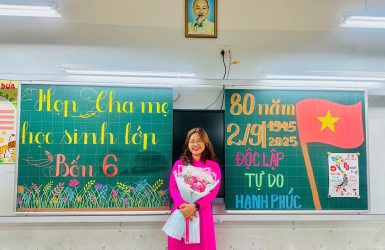 Họp Cha mẹ
học sinh lớp
Bốn 6
80 năm
2/9 1945
2025
ĐỘC LẬP
TỰ DO
HẠNH PHÚC